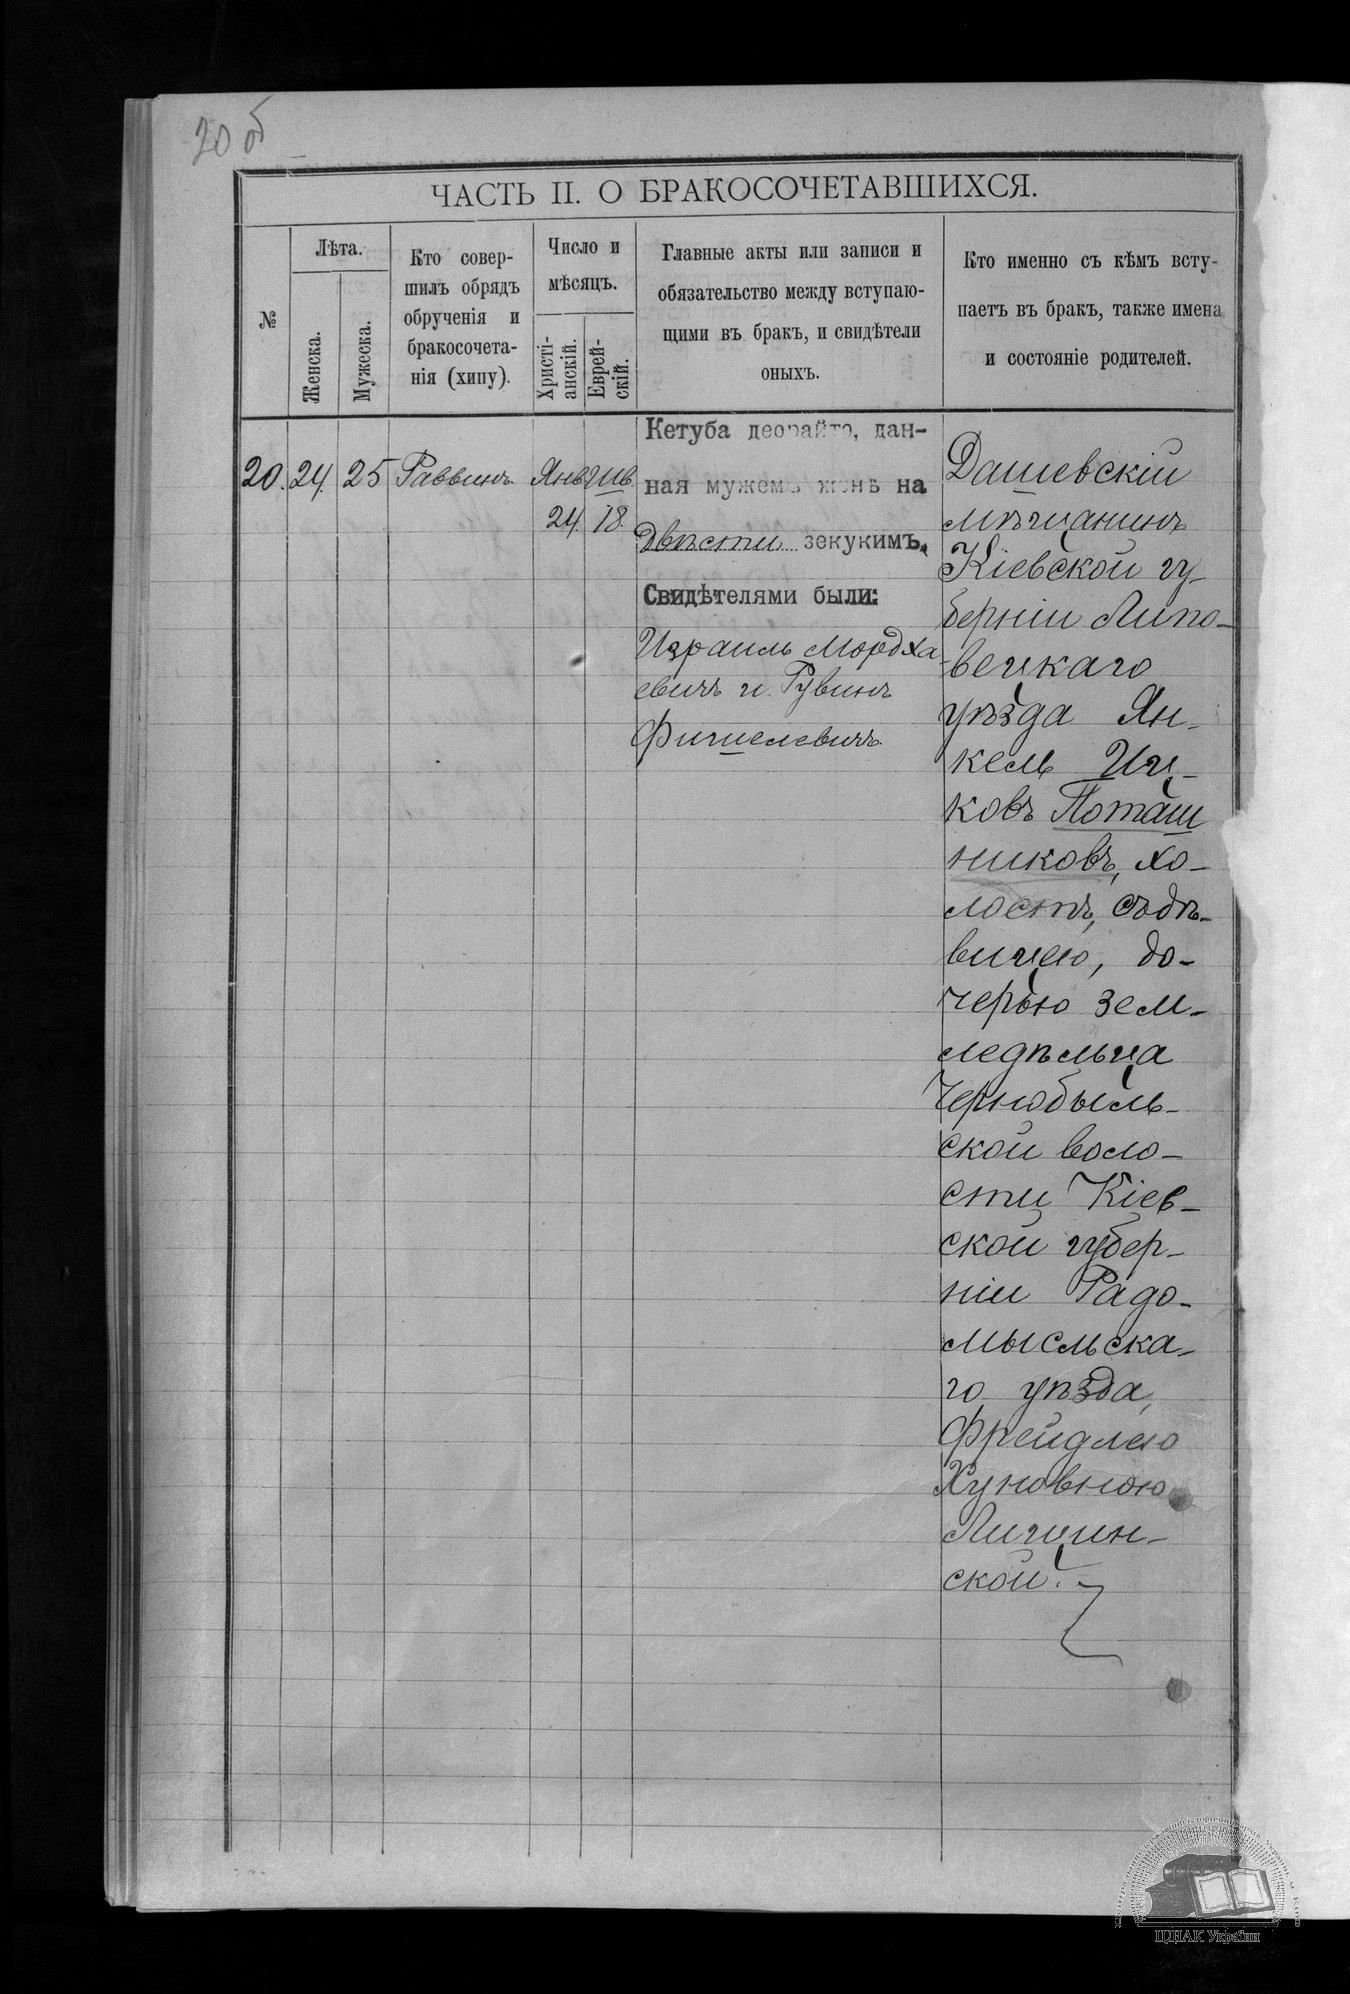 20 об
ЧАСТЬ II. О БРАКОСОЧЕТАВШИХСЯ.
№
Лѣта.
Женска.
Мужеска.
Кто совер-
шилъ обрядъ
обрученія и
бракосочета-
нія (хипу).
Число и
мѣсяцъ.
Христі-
анскій.
Еврей-
скій.
Главные акты или записи и
обязательство между вступаю-
щими въ бракъ, и свидѣтели
оныхъ.
Кто именно съ кѣмъ всту-
паетъ въ бракъ, также имена
и состояніе родителей.
20. 24. 25 Раввинъ. Янв. Шв.
24. 18.
Кетуба деорайто, дан-
ная мужемъ женѣ на
двѣсти зекукимъ.
Свидѣтелями были:
Израиль Мордха-
евичъ и Рувинъ
Фишелевичъ.
Дашевскій
мѣщанинъ
Кіевской гу-
берніи Липо-
вецкаго
уѣзда Ян-
кель Иц-
ковъ Поташ
никовъ, хо-
лостъ, съ дѣ-
вицею, до-
черью зем-
ледѣльца
Чернобыль-
ской воло-
сти Кіев-
ской губер-
ніи Радо-
мысльска-
го уѣзда,
Фрейдлею
Хуновною
Лищин-
ской.
ЦДІАК України